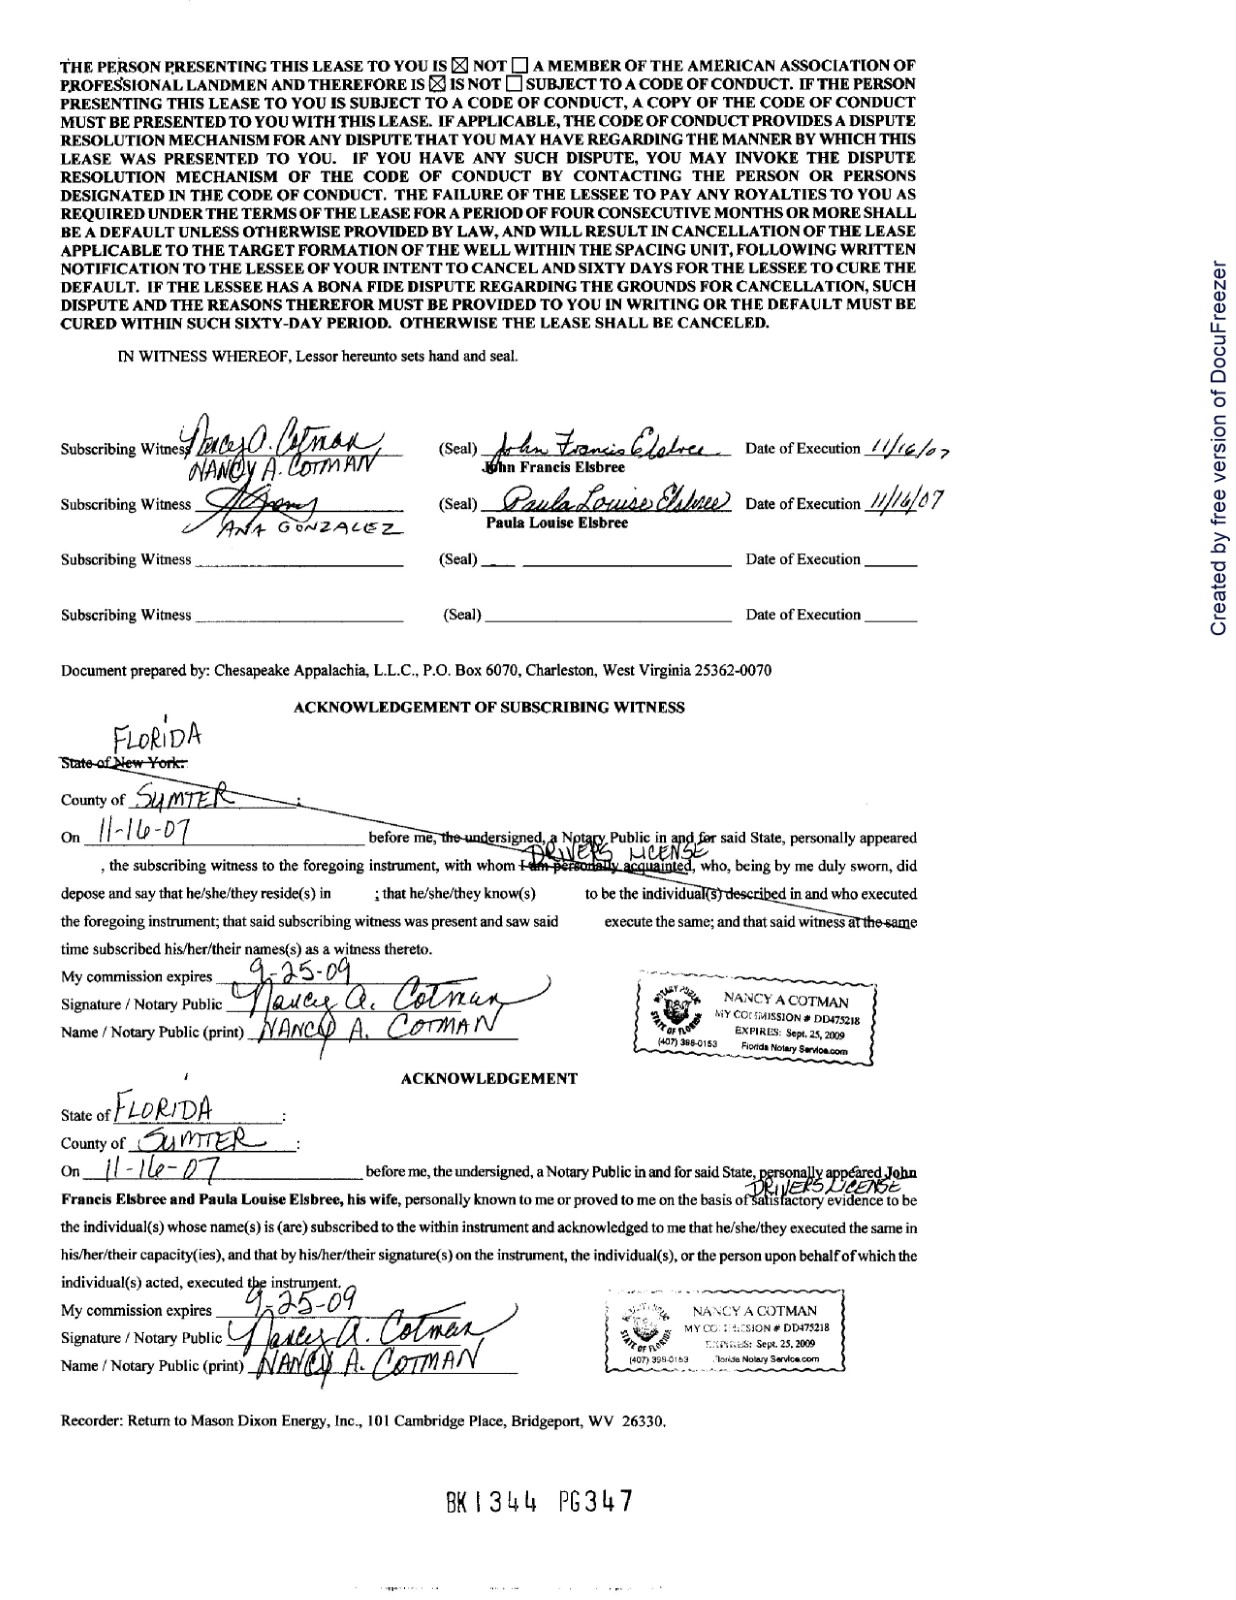 THE PERSON PRESENTING THIS LEASE TO YOU IS ☒ NOT ☐ A MEMBER OF THE AMERICAN ASSOCIATION OF
PROFESSIONAL LANDMEN AND THEREFORE IS ☒ IS NOT ☐ SUBJECT TO A CODE OF CONDUCT. IF THE PERSON
PRESENTING THIS LEASE TO YOU IS SUBJECT TO A CODE OF CONDUCT, A COPY OF THE CODE OF CONDUCT
MUST BE PRESENTED TO YOU WITH THIS LEASE. IF APPLICABLE, THE CODE OF CONDUCT PROVIDES A DISPUTE
RESOLUTION MECHANISM FOR ANY DISPUTE THAT YOU MAY HAVE REGARDING THE MANNER BY WHICH THIS
LEASE WAS PRESENTED TO YOU. IF YOU HAVE ANY SUCH DISPUTE, YOU MAY INVOKE THE DISPUTE
RESOLUTION MECHANISM OF THE CODE OF CONDUCT BY CONTACTING THE PERSON OR PERSONS
DESIGNATED IN THE CODE OF CONDUCT. THE FAILURE OF THE LESSEE TO PAY ANY ROYALTIES TO YOU AS
REQUIRED UNDER THE TERMS OF THE LEASE FOR A PERIOD OF FOUR CONSECUTIVE MONTHS OR MORE SHALL
BE A DEFAULT UNLESS OTHERWISE PROVIDED BY LAW, AND WILL RESULT IN CANCELLATION OF THE LEASE
APPLICABLE TO THE TARGET FORMATION OF THE WELL WITHIN THE SPACING UNIT, FOLLOWING WRITTEN
NOTIFICATION TO THE LESSEE OF YOUR INTENT TO CANCEL AND SIXTY DAYS FOR THE LESSEE TO CURE THE
DEFAULT. IF THE LESSEE HAS A BONA FIDE DISPUTE REGARDING THE GROUNDS FOR CANCELLATION, SUCH
DISPUTE AND THE REASONS THEREFOR MUST BE PROVIDED TO YOU IN WRITING OR THE DEFAULT MUST BE
CURED WITHIN SUCH SIXTY-DAY PERIOD. OTHERWISE THE LEASE SHALL BE CANCELED.
IN WITNESS WHEREOF, Lessor hereunto sets hand and seal.
Subscribing Witness Nancy A. Cotman (Seal) John Francis Elsbree Date of Execution 11/16/07
NANCY A. COTMAN John Francis Elsbree
Subscribing Witness (Seal) Paula Louise Elsbree Date of Execution 11/16/07
ANA GONZALEZ Paula Louise Elsbree
Subscribing Witness (Seal) Date of Execution
Subscribing Witness (Seal) Date of Execution
Document prepared by: Chesapeake Appalachia, L.L.C., P.O. Box 6070, Charleston, West Virginia 25362-0070
ACKNOWLEDGEMENT OF SUBSCRIBING WITNESS
FLORIDA
State of New York:
County of SUMTER :
On 11-16-07 before me, the undersigned, a Notary Public in and for said State, personally appeared
DRIVERS LICENSE
, the subscribing witness to the foregoing instrument, with whom I am personally acquainted, who, being by me duly sworn, did
depose and say that he/she/they reside(s) in ; that he/she/they know(s) to be the individual(s) described in and who executed
the foregoing instrument; that said subscribing witness was present and saw said execute the same; and that said witness at the same
time subscribed his/her/their names(s) as a witness thereto.
My commission expires 9-25-09
Signature / Notary Public Nancy A. Cotman
Name / Notary Public (print) NANCY A. COTMAN
NOTARY PUBLIC STATE OF FLORIDA
NANCY A COTMAN
MY COMMISSION # DD475218
EXPIRES: Sept. 25, 2009
(407) 398-0153 Florida Notary Service.com
ACKNOWLEDGEMENT
State of FLORIDA :
County of SUMTER :
On 11-16-07 before me, the undersigned, a Notary Public in and for said State, personally appeared John
DRIVERS LICENSE
Francis Elsbree and Paula Louise Elsbree, his wife, personally known to me or proved to me on the basis of satisfactory evidence to be
the individual(s) whose name(s) is (are) subscribed to the within instrument and acknowledged to me that he/she/they executed the same in
his/her/their capacity(ies), and that by his/her/their signature(s) on the instrument, the individual(s), or the person upon behalf of which the
individual(s) acted, executed the instrument.
My commission expires 9-25-09
Signature / Notary Public Nancy A. Cotman
Name / Notary Public (print) NANCY A. COTMAN
STATE OF FLORIDA
NANCY A COTMAN
MY COMMISSION # DD475218
EXPIRES: Sept. 25, 2009
(407) 398-0153 Florida Notary Service.com
Recorder: Return to Mason Dixon Energy, Inc., 101 Cambridge Place, Bridgeport, WV 26330.
BK1344 PG347
Created by free version of DocuFreezer